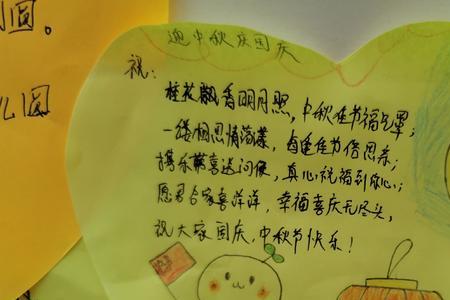 圆。
儿圆
迎中秋庆国庆
祝:
桂花飘香明月照,中秋佳节福兄罩;
一缕相思情荡漾,每逢佳节倍思亲;
携乐带喜送问候,真心祝福到你心;
愿君合家喜洋洋,幸福喜庆无尽头,
祝大家国庆、中秋节快乐!